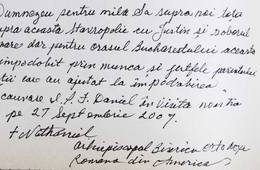 Dumnezeu pentru mila Sa supra noi totu
upra aceasta Stavropolie cu Justin și soborul
mare dar pentru orasul Bucharestului aceasta
împodobit prin munca si jertfele parintelui
tii cae au ajutat la împodabirea
caunare I.A.F. Daniel în visita noastra
pe 27 Septembrie 2007.
+ Nathaniel
Arhiepiscopal Biserica Ortodoxa
Romana din America